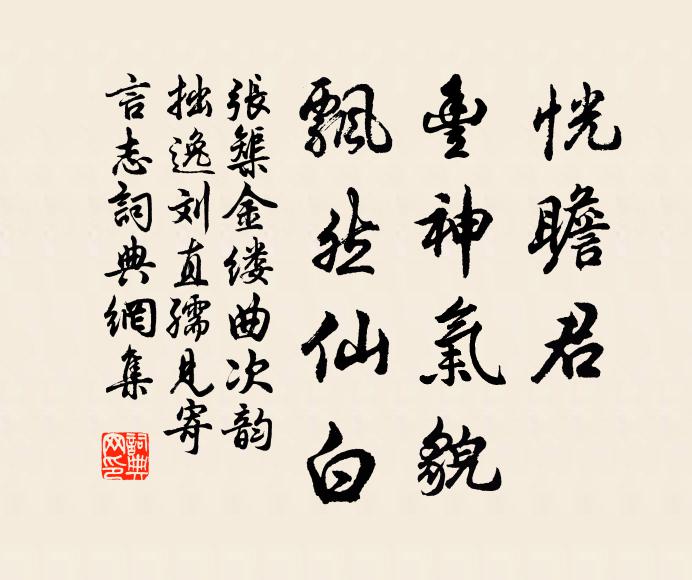 恍瞻君
豊神氣貌
飄然仙白
張榘金缕曲次韵
拙逸刘直孺見寄
言志詞典網集
詞典網印